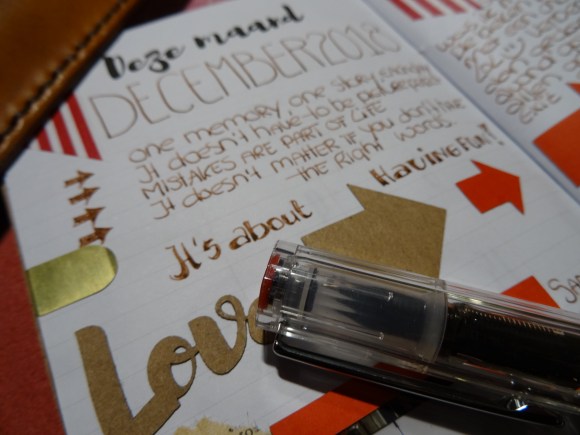 Deze maand
DECEMBER 2018
one memory one story everyday
It doesn't have to be picture perfect
MISTAKES ARE PART OF LIFE
It doesn't matter if you don't have
the Right words.
Having fun!
It's about
Love